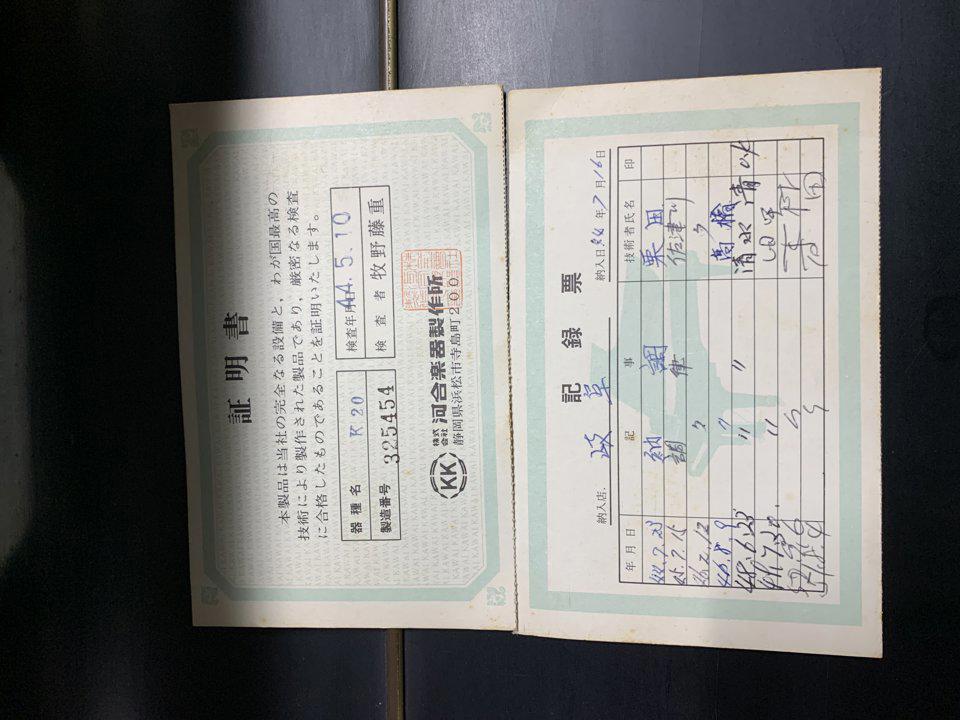 証明書
本製品は当社の完全なる設備と，わが国最高の
技術により製作された製品であり，厳密なる検査
に合格したものであることを証明いたします。
器種名 K20
製造番号 325454
検査年月日 44.5.10
検査者 牧野藤重
KK 株式会社 河合楽器製作所
静岡県浜松市寺島町200
記録票
納入店. 岐阜 納入日 年7月16日
年月日 記事 技術者氏名 印
44.7.23 納調 栗田
45.7.15 調律 佐津川
46.2.12 〃 〃
46.8.9 〃 高橋
48.6.25 〃 〃 清水清
49.7.30. 〃